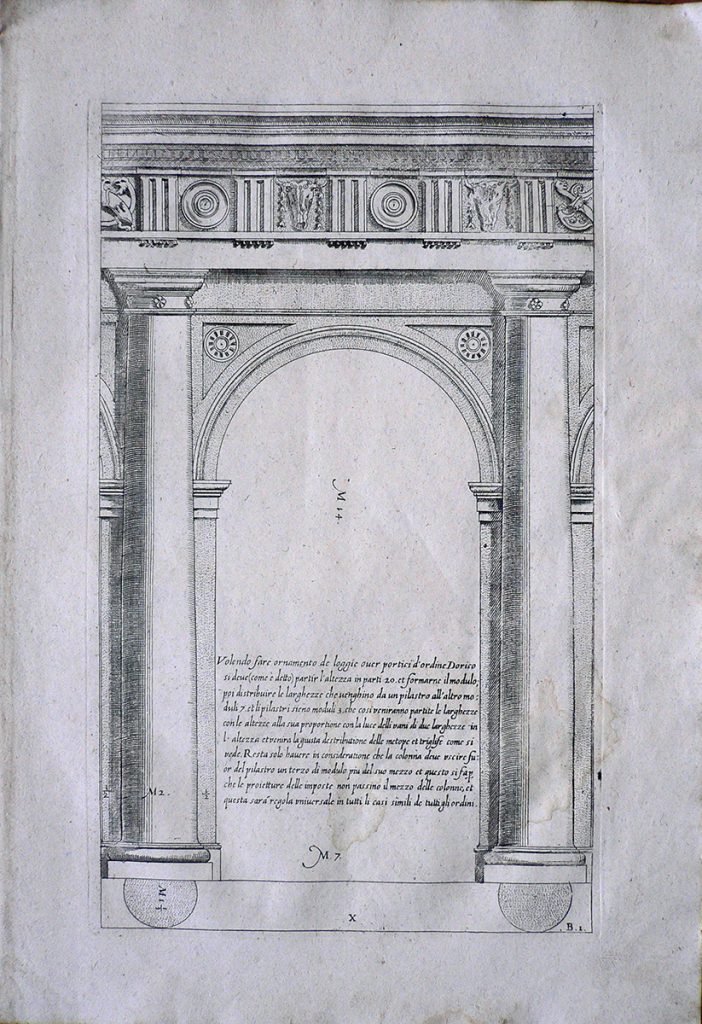 M 14
Volendo fare ornamento de loggie ouer portici d'ordine Dorico
si deue (come è detto) partir l'altezza in parti 20. et formarne il modulo,
poi distribuire le larghezze che uenghino da un pilastro all'altro mo-
duli 7. et li pilastri sieno moduli 3. che cosi veniranno partite le larghezze
con le altezze alla sua proportione con la luce delli vani di due larghezze in
l'altezza et venira la giusta destributione delle metope et triglife come si
vede. Resta solo hauere in consideratione che la colonna deue vscire fu-
or del pilastro un terzo di modulo piu del suo mezzo et questo si fa p
che le proietture delle imposte non passino il mezzo delle colonne, et
questa sara regola vniuersale in tutti li casi simili de tutti gli ordini.
½ M 2. ½
M. 7.
M 1⅓
X
B. 1.